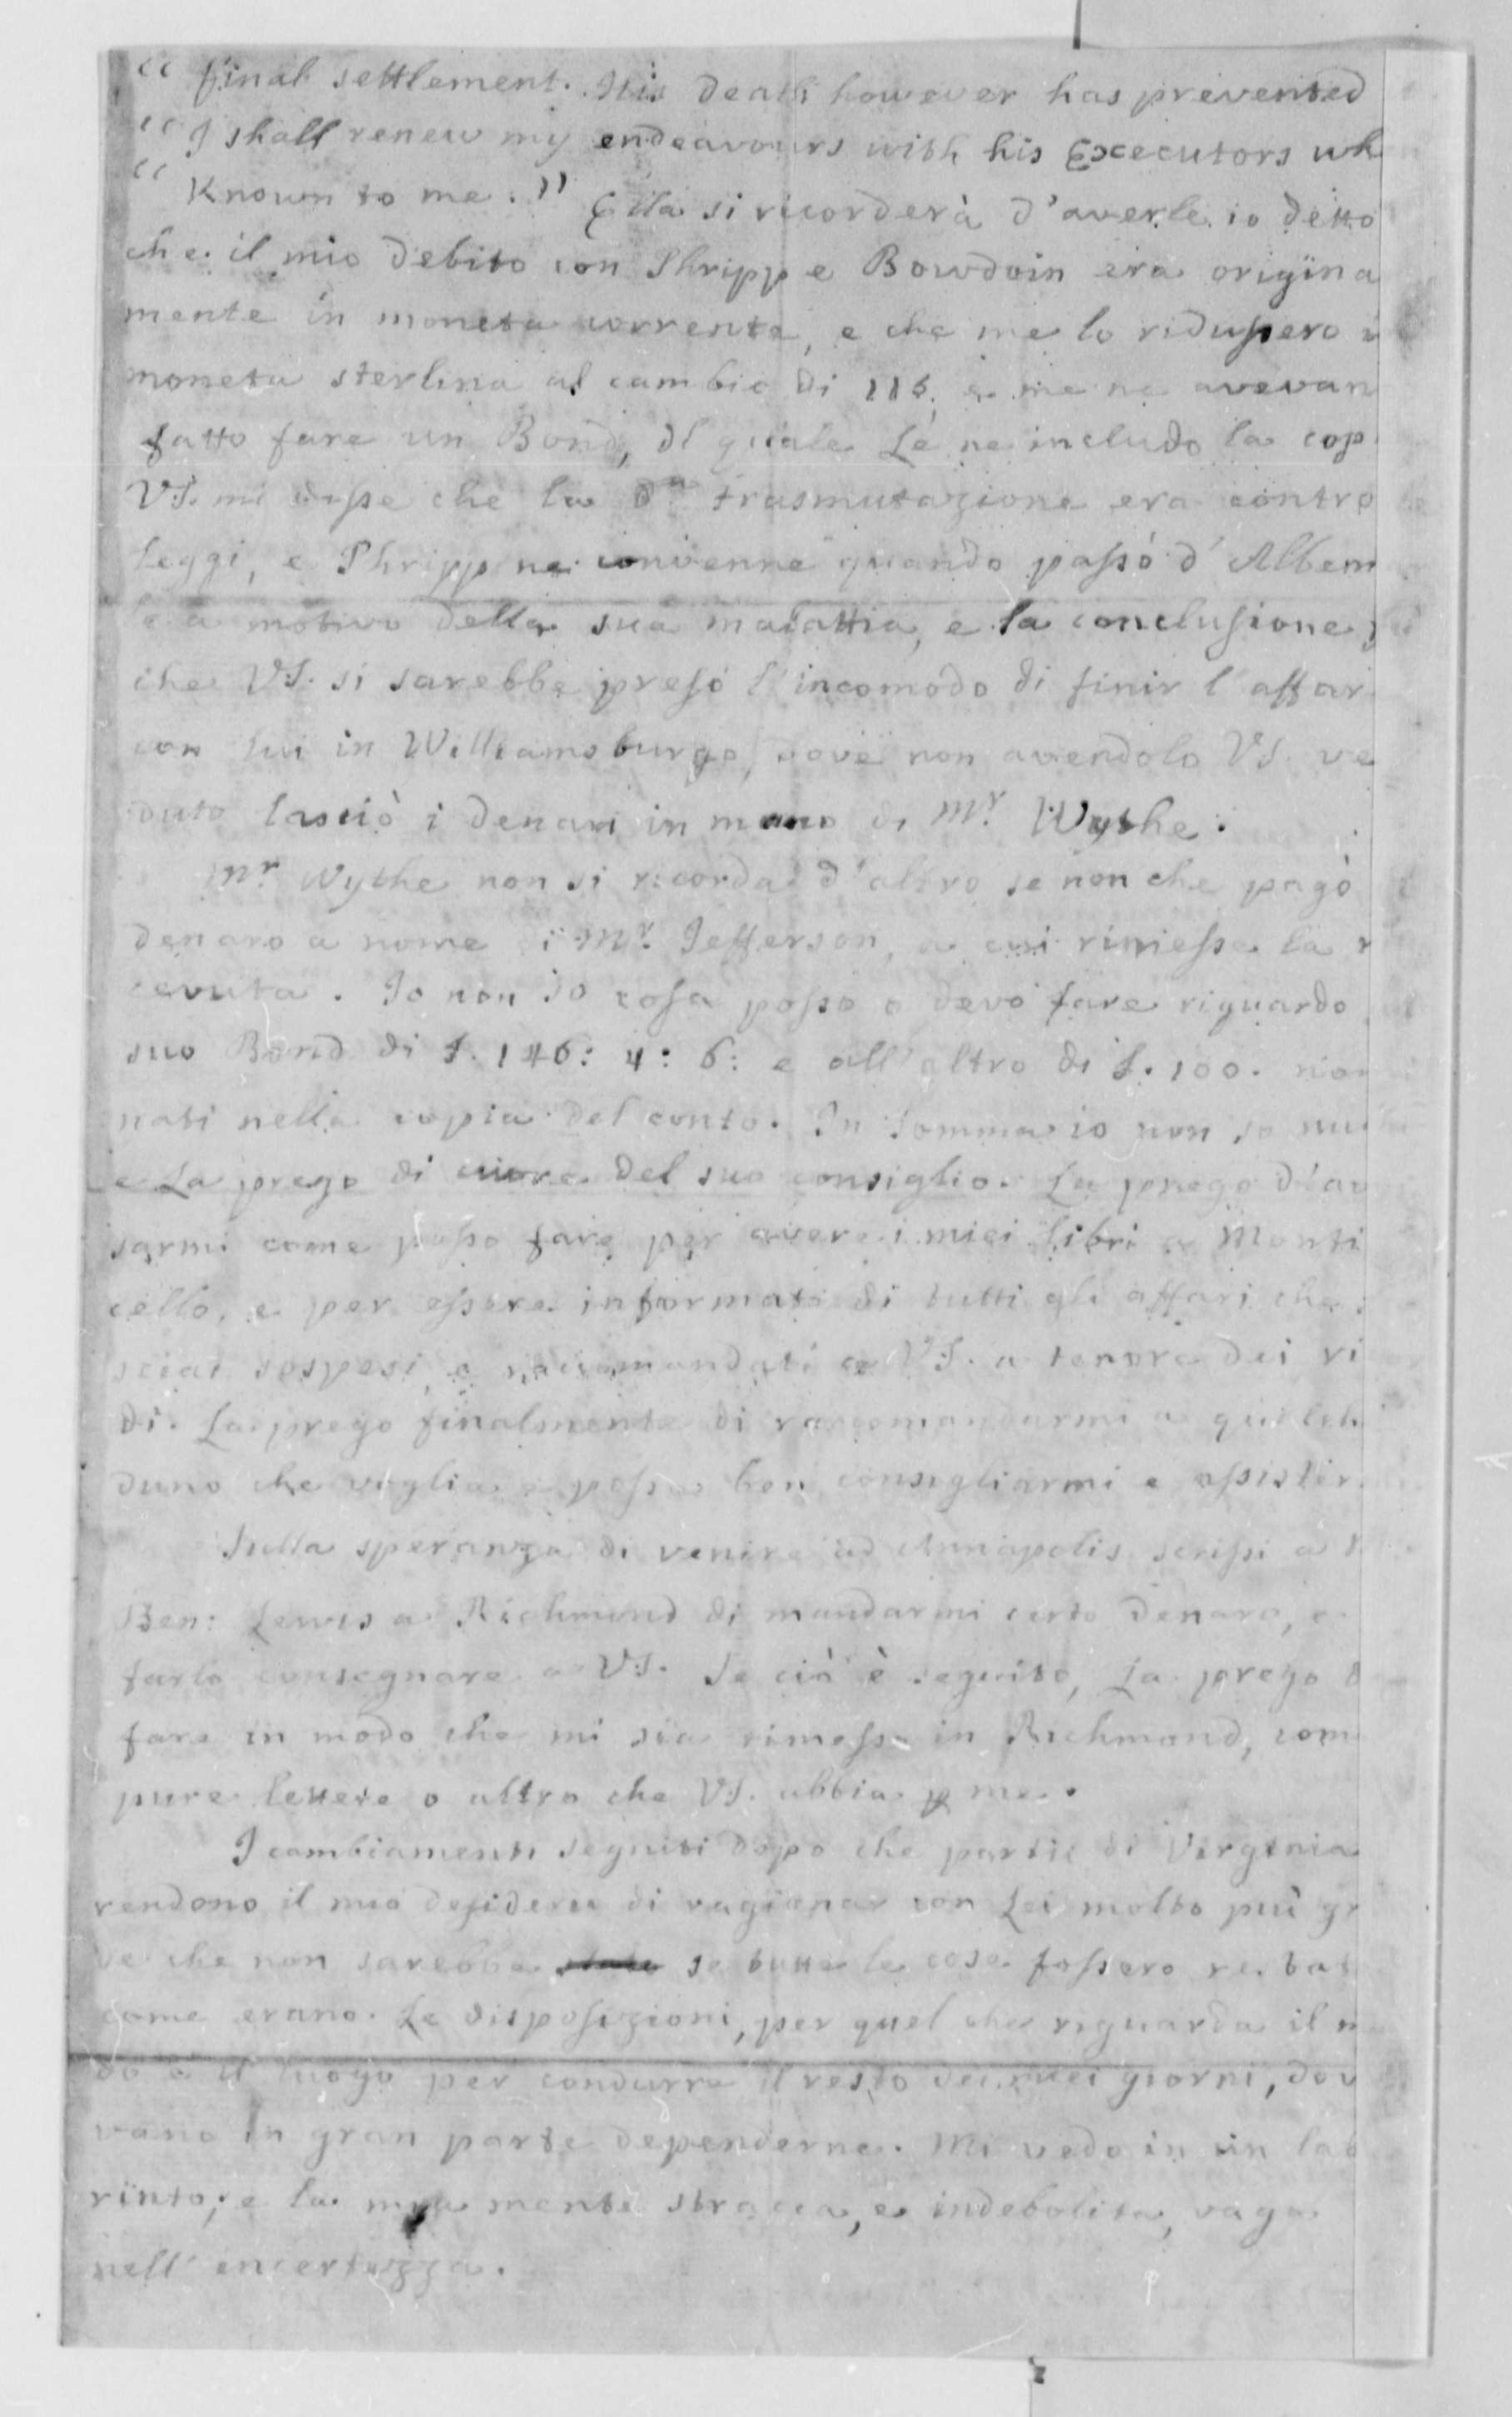 “ final settlement. His death however has prevented
“ I shall renew my endeavours with his Executors wh
“ Known to me.” Ella si ricorderà d'averle io detto
che il mio debito con Phripp e Bowdoin era origina
mente in moneta corrente, e che me lo ridussero i
moneta sterlina al cambio di 115, e me ne avevan
fatto fare un Bond, il quale Le ne includo la cop
VS. mi disse che la da trasmutazione era contro
Leggi, e Phripp ne convenne quando passò d'Albem
e a motivo della sua malattia, e la conclusione
che VS. si sarebbe preso l'incomodo di finir l'affar
con lui in Williamsburgo, dove non avendolo VS. ve
duto lasciò i denari in mano di Mr. Wythe.
Mr. Wythe non si ricorda d'altro se non che pagò
denaro a nome di Mr. Jefferson, a cui rimesse la r
cevuta. Io non so cosa posso o devo fare riguardo
suo Bond di £. 146: 4: 6: e all'altro di £. 100.
nati nella copia del conto. In somma io non so nul
e La prego di cuore del suo consiglio. La prego d'av
sarmi come posso fare per avere i miei libri a Monti
cello, e per essere informato di tutti gli affari che
sciai sospesi, e raccomandati a VS. a tenore dei ri
di. La prego finalmente di raccomandarmi a qualch
duno che voglia e possa ben consigliarmi e assister
Sulla speranza di venire ad Annapolis scrissi a
Ben: Lewis a Richmond di mandarmi certo denaro, e
farlo consegnare a VS. Se ciò è seguito, La prego d
fare in modo che mi sia rimesso in Richmond, com
pure lettere o altro che VS. abbia p me.
I cambiamenti seguiti dopo che partii di Virginia
rendono il mio desiderio di ragionar con Lei molto più gr
ve che non sarebbe se tutte le cose fossero restat
come erano. Le disposizioni, per quel che riguarda il m
do e il luogo per condurre il resto dei miei giorni, dov
vano in gran parte dependerne. Mi vedo in un lab
rinto; e la mia mente stracca, e indebolita, vaga
nell'incertezza.